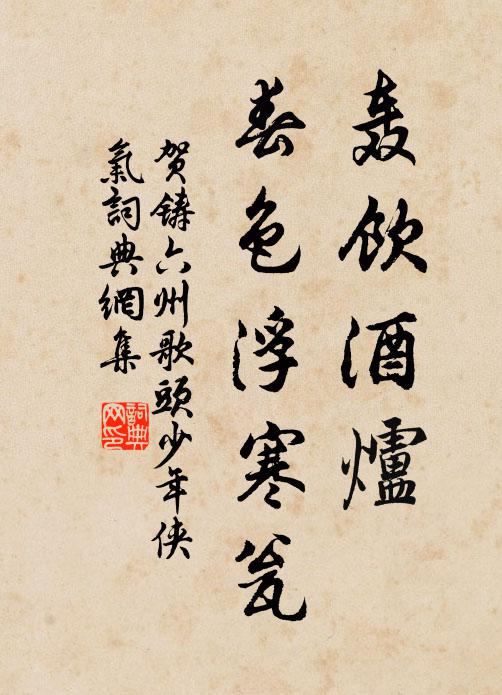 轰饮酒爐
春色浮寒瓮
贺铸六州歌頭少年侠
氣詞典網集
詞典网印